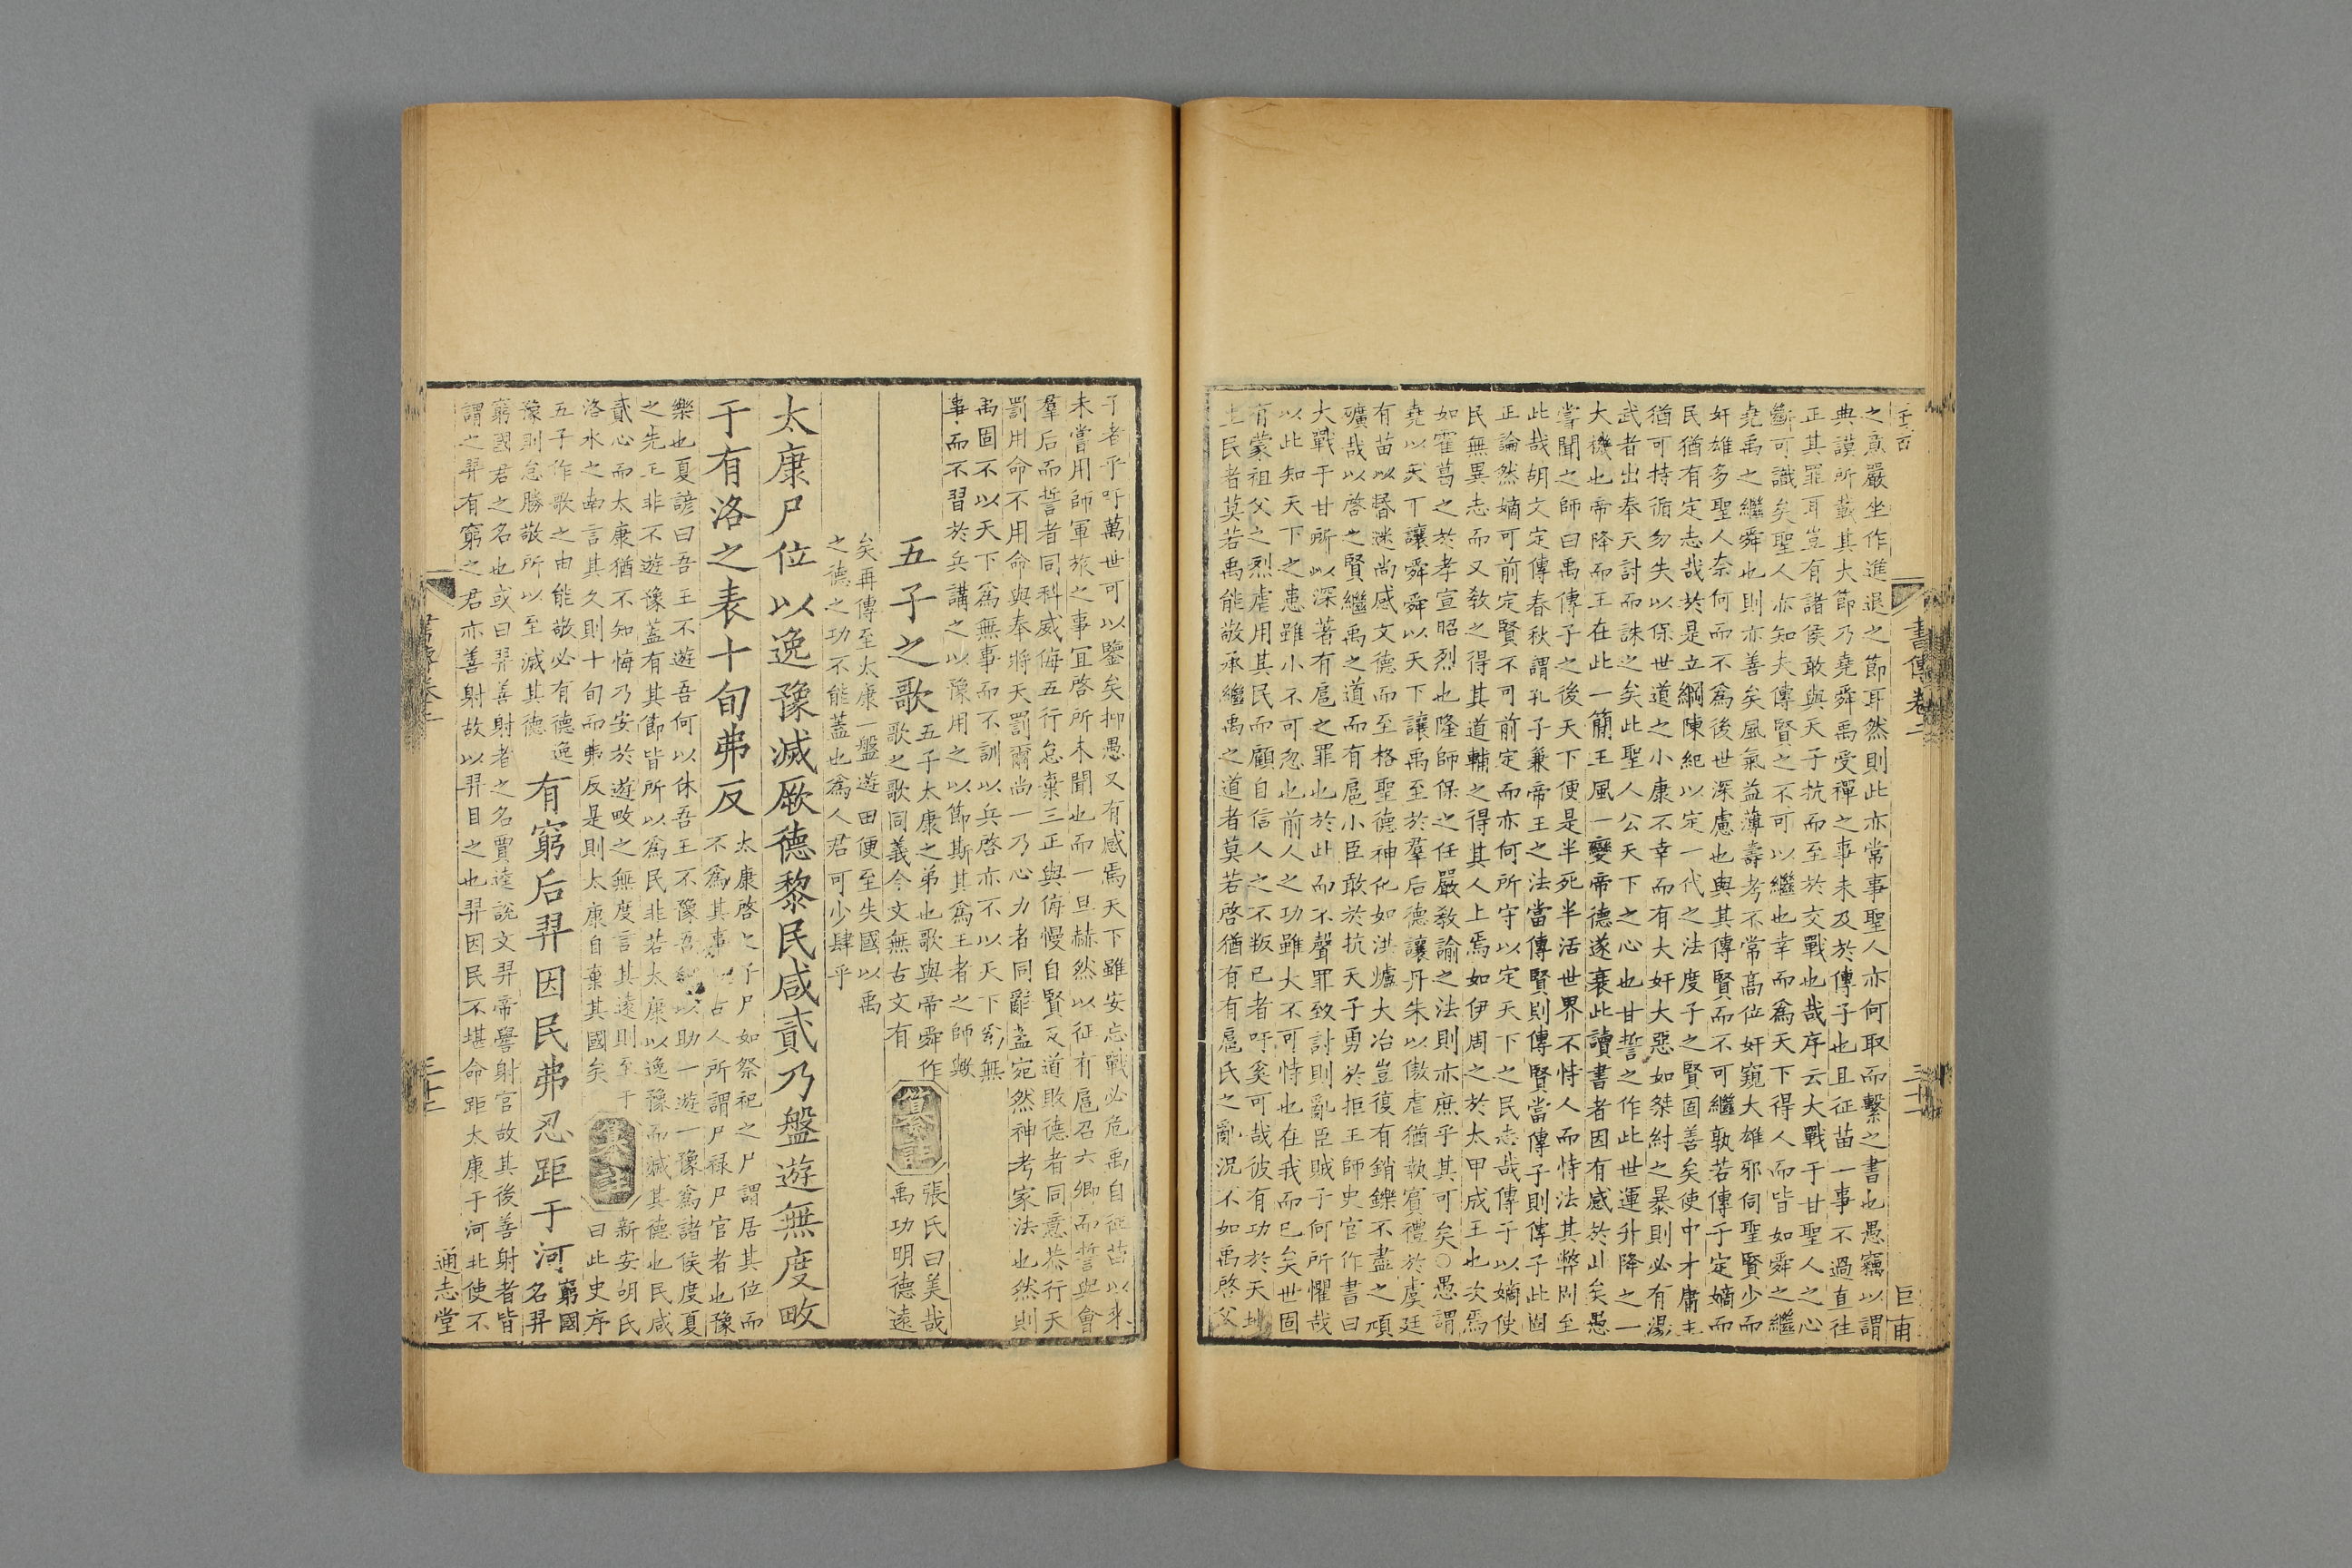 書傳卷二
三十一
巨甫
之意嚴坐作進退之節耳然則此亦常事聖人亦何取而繫之書也愚竊以謂
典謨所載其大節乃堯舜禹受禪之事未及於傳子也且征苗一事不過直往
正其罪耳豈有諸侯敢與天子抗而至於交戰也哉序云大戰于甘聖人之心
斷可識矣聖人亦知夫傳賢之不可以繼也幸而為天下得人而皆如舜之繼
堯禹之繼舜也則亦善矣風氣益薄壽考不常高位奸窺大雄邪伺聖賢少而
奸雄多聖人奈何而不為後世深慮也與其傳賢而不可繼孰若傳子定嫡而
民猶有定志哉於是立綱陳紀以定一代之法度子之賢固善矣使中才庸主
猶可持循勿失以保世道之小康不幸而有大奸大惡如桀紂之暴則必有湯
武者出奉天討而誅之矣此聖人公天下之心也甘誓之作此世運升降之一
大機也帝降而王在此一簡王風一變帝德遂衰此讀書者因有感於此矣愚
嘗聞之師曰禹傳子之後天下便是半死半活世界不恃人而恃法其弊則至
此哉胡文定傳春秋謂孔子兼帝王之法當傳賢則傳賢當傳子則傳子此固
正論然嫡可前定賢不可前定而亦何所守以定天下之民志哉傳子以嫡使
民無異志而又教之得其道輔之得其人上焉如伊周之於太甲成王也次焉
如霍葛之於孝宣昭烈也隆師保之任嚴教諭之法則亦庶乎其可矣○愚謂
堯以天下讓舜舜以天下讓禹至於羣后德讓丹朱以傲虐猶執賓禮於虞廷
有苗以昏迷尚感文德而至格聖德神化如洪爐大冶豈復有銷鑠不盡之頑
礦哉以啓之賢繼禹之道而有扈小臣敢於抗天子勇於拒王師史官作書曰
大戰于甘所以深著有扈之罪也於此而不聲罪致討則亂臣賊子何所懼哉
以此知天下之患雖小不可忽也前人之功雖大不可恃也在我而已矣世固
有蒙祖父之烈虐用其民而顧自信人之不叛已者吁奚可哉彼有功於天地
生民者莫若禹能敬承繼禹之道者莫若啓猶有有扈氏之亂況不如禹啓父
子者乎吁萬世可以鑒矣抑愚又有感焉天下雖安忘戰必危禹自征苗以來
未嘗用師軍旅之事宜啓所未聞也而一旦赫然以征有扈召六卿而誓與會
羣后而誓者同科威侮五行怠棄三正與侮慢自賢反道敗德者同意恭行天
罰用命不用命與奉將天罰爾尚一乃心力者同辭蓋宛然神考家法也然則
禹固不以天下為無事而不訓以兵啓亦不以天下為無
事而不習於兵講之以豫用之以節斯其為王者之師歟
五子之歌
五子太康之弟也歌與帝舜作
歌之歌同義今文無古文有
纂註
張氏曰美哉
禹功明德遠
矣再傳至太康一盤遊田便至失國以禹
之德之功不能蓋也為人君可少肆乎
太康尸位以逸豫滅厥德黎民咸貳乃盤遊無度畋
于有洛之表十旬弗反
太康啓之子尸如祭祀之尸謂居其位而
不為其事如古人所謂尸祿尸官者也豫
樂也夏諺曰吾王不遊吾何以休吾王不豫吾何以助一遊一豫為諸侯度夏
之先王非不遊豫蓋有其節皆所以為民非若太康以逸豫而滅其德也民咸
貳心而太康猶不知悔乃安於遊畋之無度言其遠則至于
洛水之南言其久則十旬而弗反是則太康自棄其國矣
集註
新安胡氏
曰此史序
五子作歌之由能敬必有德逸
豫則怠勝敬所以至滅其德
有窮后羿因民弗忍距于河
窮國
名羿
窮國君之名也或曰羿善射者之名賈逵說文羿帝嚳射官故其後善射者皆
謂之羿有窮之君亦善射故以羿目之也羿因民不堪命距太康于河北使不
通志堂
書傳卷二
三十二